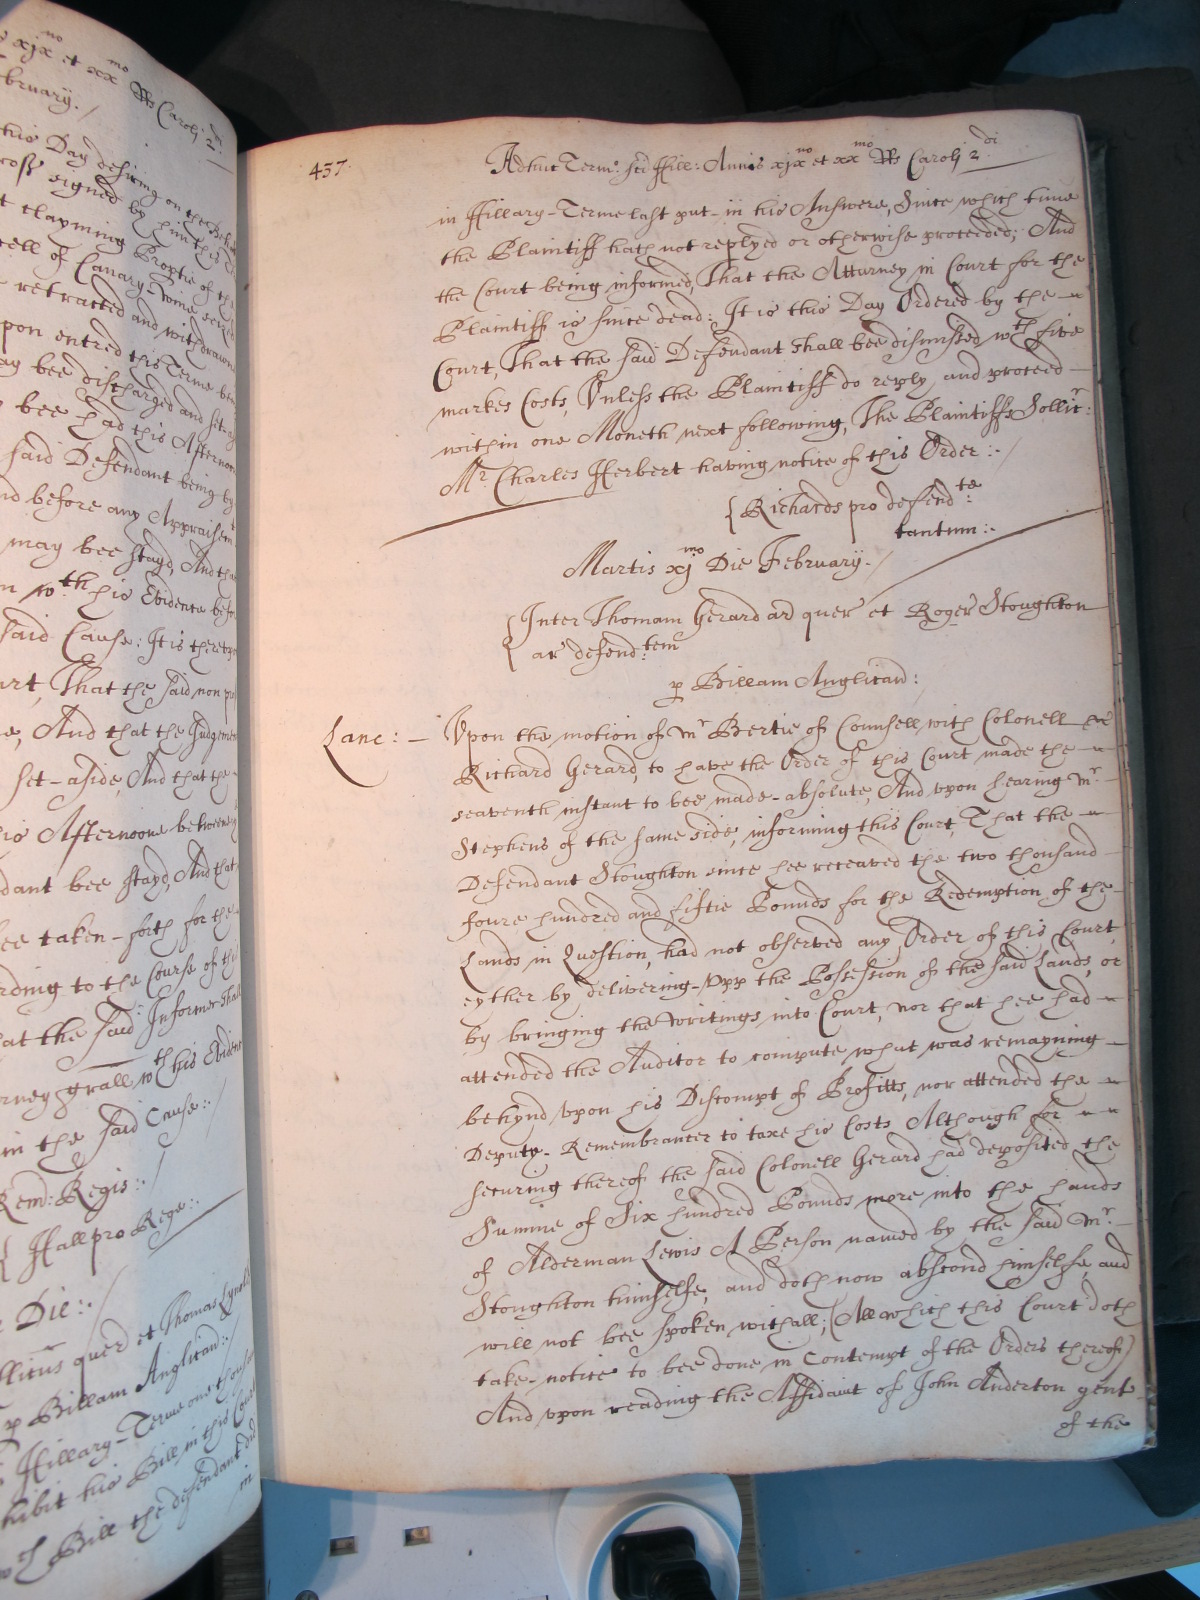 xjx no et xx mo Rs Caroli 2 di
bruary. /
this Day desiring on the
ross signed by him
t clayming Proptie of th
ell of Canary-Wine seized
retracted and withdrawne
pon entred this Terme
ay bee discharged and
bee had this Afternoon
said Defendant being by
nd before any Appraisem
may bee stayd, And tha
n wth his Evidence befo
said Cause: It is there
urt, That the said non p
e, And that the Judgement
set-aside, And that the
his Afternoone between
dant bee stayd, And that
ee taken-forth for the
rding to the Course of th
at the said Informer shall
rney grall wth his Eviden
in the said Cause:. /
Rem: Regis:. /
{ Hall pro Rege:.
Die:. /
llicus quer et Thomas Lynd
p Billam Anglican:. /
Hillary-Terme one thousan
hibit his Bill in this Court
wch Bill the defendant did
in
437.
Adhuc Term.o sci Hill: Annis xjx no et xx mo Rs Caroli 2 di
in Hillary-Terme last put-in his Answere, Since which time
the Plaintiff hath not replyed or otherwise proceeded; And
the Court being informed, That the Atturney in Court for the
Plaintiff is since dead: It is this Day Ordered by the
Court, That the said Defendant shall bee dismissed wth five
markes Costs, Vnless the Plaintiff do reply, and proceed
within one Moneth next following, The Plaintiffs Sollicr:
Mr. Charles Herbert having notice of this Order:. /
{ Richards pro defend te:
tantum:.
Martis xj mo Die February. /
{ Inter Thomam Gerard ar quer et Roger Stoughton
{ ar defend:tem
p Billam Anglican:
Lanc: – Vpon the motion of Mr Bertie of Counsell, with Colonell
Richard Gerard, to have the Order of this Court made the
seaventh instant to bee made-absolute, And vpon hearing Mr.
Stephens of the same side, informing this Court, That the
Defendant Stoughton since hee receaved the two thousand
foure hundred and fiftie Pounds for the Redemption of the
Lands in Question, had not observed any Order of this Court,
eyther by delivering-vpp the Possession of the said Lands, or
by bringing the Writings into Court, nor that hee had
attended the Auditor to compute what was remayning
behynd vpon his Discompt of Profitts, nor attended the
Deputy-Remembrancer to taxe his Costs Although for
securing thereof the said Colonell Gerard had deposited the
Summe of Six hundred Pounds more into the hands
of Alderman Lewis A Person named by the said Mr.
Stoughton himselfe, and doth now abscond himselfe, and
will not bee spoken withall; (All which this Court doth
take-notice to bee done in Contempt of the Orders thereof)
And vpon reading the Affidavit of John Anderton gent
of the